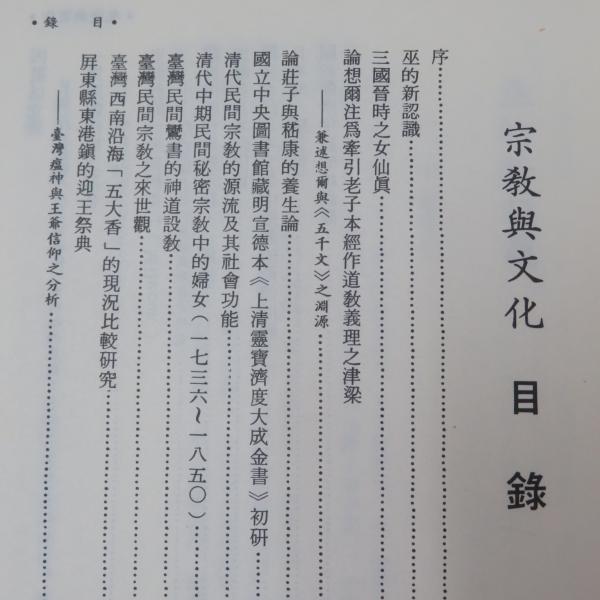 •目錄•
宗教與文化 目錄
序
巫的新認識
三國晉時之女仙眞
論想爾注爲牽引老子本經作道教義理之津梁
——兼述想爾與《五千文》之淵源
論莊子與嵇康的養生論
國立中央圖書館藏明宣德本《上清靈寶濟度大成金書》初研
清代民間宗教的源流及其社會功能
清代中期民間秘密宗教中的婦女(一七三六～一八五〇)
臺灣民間鸞書的神道設教
臺灣民間宗教之來世觀
臺灣西南沿海「五大香」的現況比較研究
屏東縣東港鎮的迎王祭典
——臺灣瘟神與王爺信仰之分析